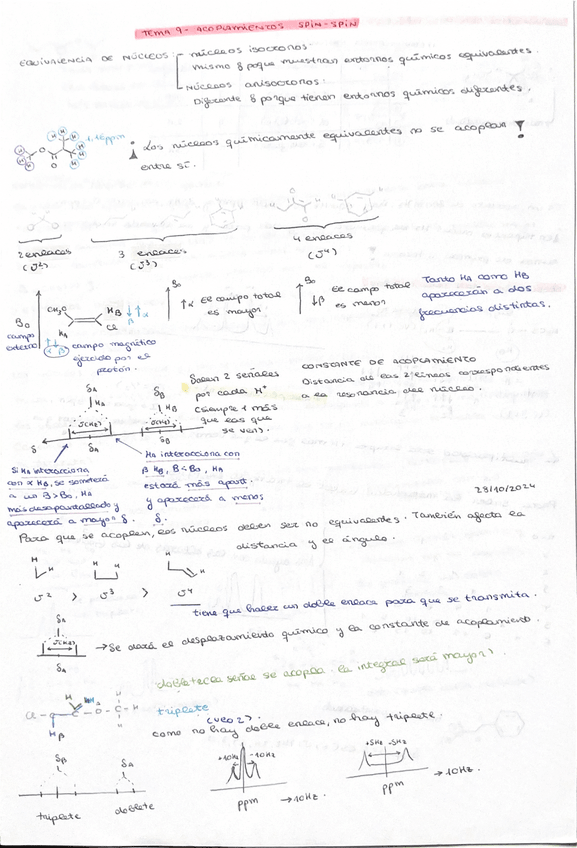 TEMA 9 - ACOPLAMIENTOS SPIN-SPIN
EQUIVALENCIA DE NÚCLEOS:
núcleos isocronos:
mismo δ poque muestran entornos químicos equivalentes.
NÚCLEOS anisocronos:
Diferente δ porque tienen entornos químicos diferentes.
¡Los núcleos químicamente equivalentes no se acoplan
entre sí. !
2 enlaces
(J²)
3 enlaces
(J³)
4 enlaces
(J⁴)
B₀
campo
externo
CH₃O
HB ↓β ↑α
HA
Cl
α β campo magnético
ejercido por el
protón.
B₀
↑α El campo total
es mayor
B₀
↓β El campo total
es menor
Tanto HA como HB
aparecerán a dos
frecuencias distintas.
Salen 2 señales
por cada H⁺
(siempre + más
que las que
se ven).
CONSTANTE DE ACOPLAMIENTO
Distancia de las 2 líneas correspondientes
a la resonancia del núcleo.
δA
HA
J(Hz)
δA
δB
HB
J(Hz)
δB
δ
Si HA interacciona
con α HB, se someterá
a un B>B₀, HA
más desapantallado y
aparecerá a mayor δ.
HA interacciona con
β HB, B<B₀, HA
estará más apant.
y aparecerá a menos
δ.
29/10/2024
Para que se acoplen, los núcleos deben ser no equivalentes. También afecta la
distancia y el ángulo.
H H
H H
H H
J² > J³ > J⁴
tiene que haber un doble enlace para que se transmita.
δA
J(Hz)
δA
→ Se dará el desplazamiento químico y la constante de acoplamiento.
triplete
(veo 2).
como no hay doble enlace, no hay triplete.
δB
δA
triplete
doblete
+10Hz -10Hz
ppm → 10Hz
+5Hz -5Hz
ppm
→ 10Hz.